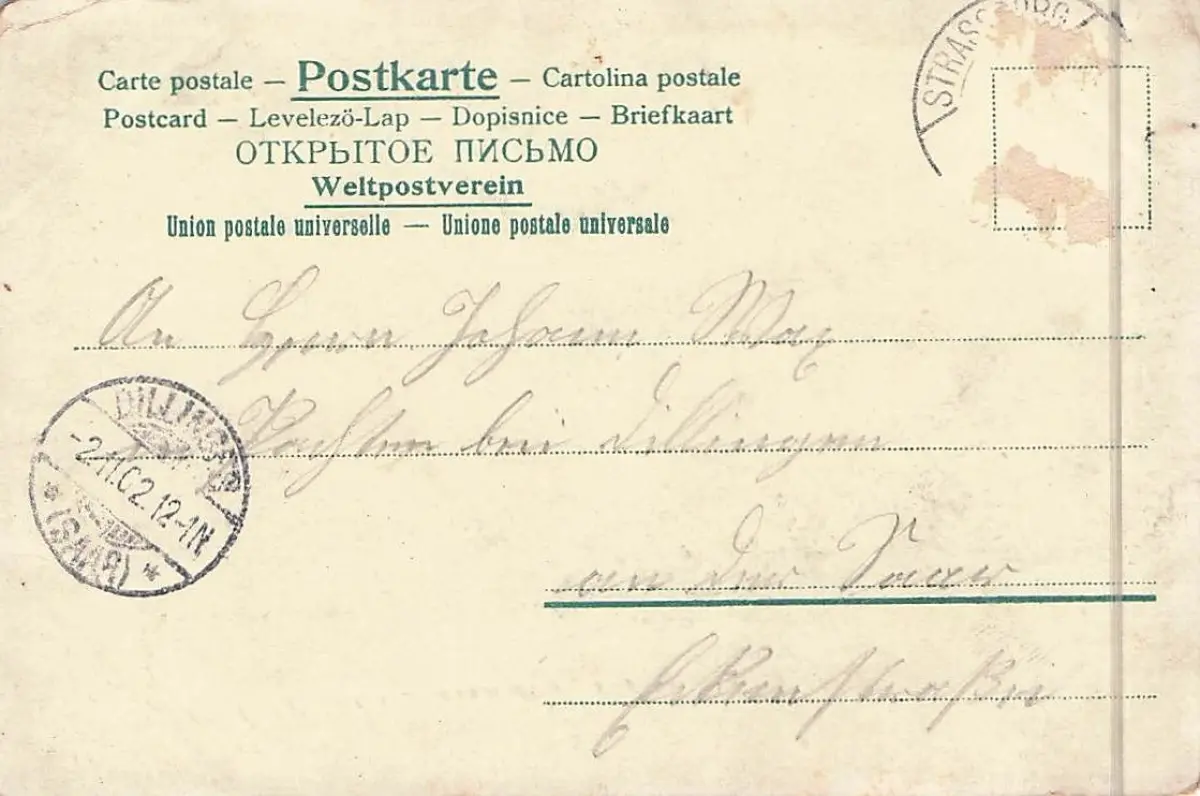 Carte postale — Postkarte — Cartolina postale
Postcard — Levelezö-Lap — Dopisnice — Briefkaart
ОТКРЫТОЕ ПИСЬМО
Weltpostverein
Union postale universelle — Unione postale universale
STRASSBURG
An Herrn Johann Max
Pachten bei Dillingen
an der Saar
DILLINGEN
-2.11.02.12-1N
* (SAAR) *